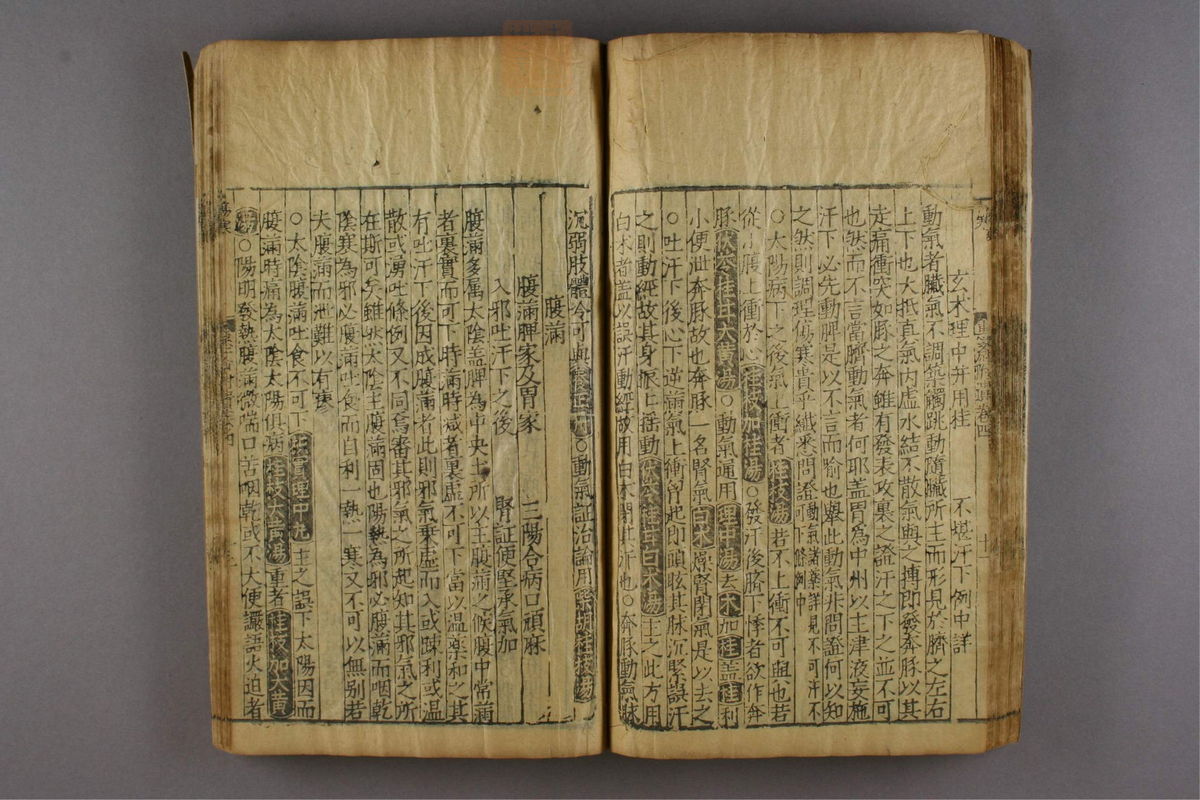 玄术理中并用桂　不堪汗下例中詳
動氣者臟氣不調築觸跳動隨臟所主而形見於臍之左右
上下也大抵真氣内虚水結不散氣與之搏即發奔豚以其
走痛衝突如豚之奔雖有發表攻裏之證汗之下之並不可
也然而不言當臍動氣者何耶盖胃為中州以主津液妄施
汗下必先動脾是以不言而喻也舉此動氣非問證何以知
之然則調理傷寒貴乎纖悉問證動氣諸藥詳見不可汗不可下條例中
○太陽病下之後氣上衝者桂枝湯若不上衝不可與也若
從小腹上衝於心桂枝加桂湯○發汗後臍下悸者欲作奔
豚茯苓桂甘大黄湯○動氣通用理中湯去术加桂盖桂利
小便泄奔豚故也奔豚一名腎氣白术燥腎閉氣是以去之
○吐汗下後心下逆滿氣上衝胷起即頭眩其脉沉緊誤汗
之則動經故其身振上揺動茯苓桂甘白术湯主之此方用
白术者盖以誤汗動經故用白术閉其汗也○奔豚動氣狀
沉弱肢體冷可與養正丹○動氣証治論用柴胡桂枝湯
腹滿
腹滿脾家及胃家　三陽合病口頑麻
入邪吐汗下之後　腎証便堅承氣加
腹滿多属太陰盖脾為中央土所以主腹滿之候腹中常滿
者裏實而可下時滿時减者裏虚不可下當以温藥和之其
有吐汗下後因成腹滿者此則邪氣乗虚而入或踈利或温
散或湧吐條例又不同焉審其邪氣之所起知其邪氣之所
在斯可矣雖然太陰主腹滿固也陽熱為邪必腹滿而咽乾
陰寒為邪必腹滿吐食而自利一熱一寒又不可以無别若
大腹滿而泄難以有瘳
○太陰腹滿吐食不可下枳實理中丸主之誤下太陽因而
腹滿時痛為太陰太陽俱病桂枝大黄湯重者桂枝加大黄
湯○陽明發熱腹滿微喘口苦咽乾或不大便譫語火迫者